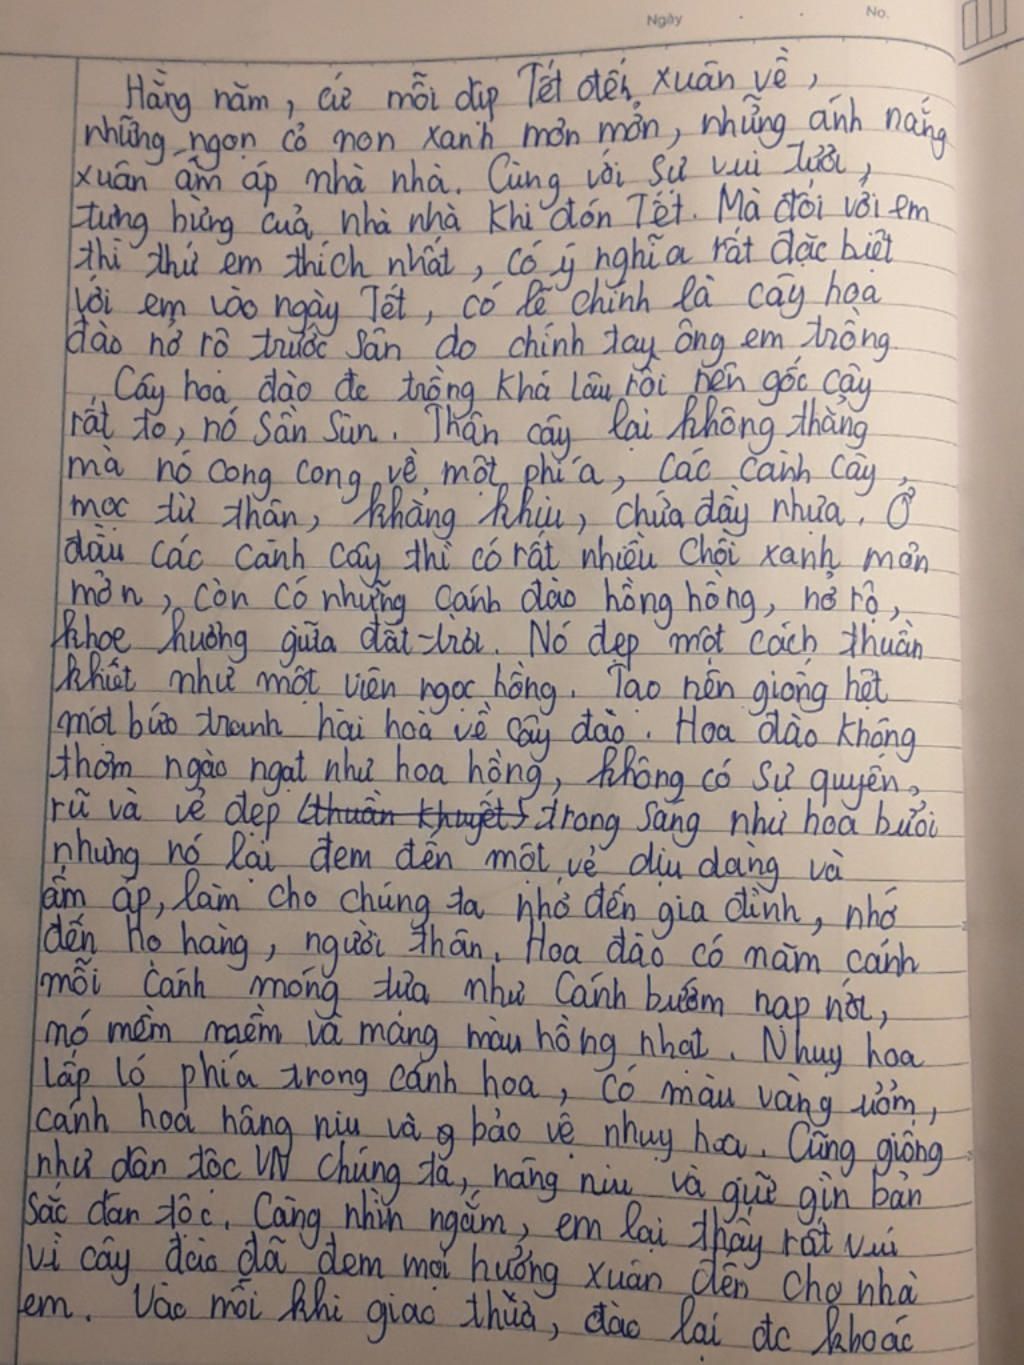 Ngày . . No.
Hằng năm, cứ mỗi dịp Tết đến xuân về,
những ngọn cỏ non xanh mơn mởn, những ánh nắng
xuân ấm áp nhà nhà. Cùng với sự vui tươi,
tưng bừng của nhà nhà khi đón Tết. Mà đối với em
thì thứ em thích nhất, có ý nghĩa rất đặc biệt
với em vào ngày Tết, có lẽ chính là cây hoa
đào nở rộ trước sân do chính tay ông em trồng.
Cây hoa đào đc trồng khá lâu rồi nên gốc cây
rất to, nó sần sùn. Thân cây lại không thẳng
mà nó cong cong về một phía, các cành cây
mọc từ thân, khẳng khiu, chứa đầy nhựa. Ở
đầu các cành cây thì có rất nhiều chồi xanh mơn
mởn, còn có những cánh đào hồng hồng, nở rộ,
khoe hương giữa đất trời. Nó đẹp một cách thuần
khiết như một viên ngọc hồng. Tạo nên giống hệt
một bức tranh hài hoà về cây đào. Hoa đào không
thơm ngào ngạt như hoa hồng, không có sự quyến
rũ và vẻ đẹp (thuần khuyết) trong sáng như hoa bưởi
nhưng nó lại đem đến một vẻ dịu dàng và
ấm áp, làm cho chúng ta nhớ đến gia đình, nhớ
đến họ hàng, người thân. Hoa đào có năm cánh
mỗi cánh mỏng tựa như cánh bướm nạp nớt,
nó mềm mềm và mang màu hồng nhạt. Nhụy hoa
lấp ló phía trong cánh hoa, có màu vàng ươm,
cánh hoa nâng niu và bảo vệ nhụy hoa. Cũng giống
như dân tộc VN chúng ta, nâng niu và giữ gìn bản
sắc dân tộc. Càng nhìn ngắm, em lại thấy rất vui
vì cây đào đã đem mọi hương xuân đến cho nhà
em. Vào mỗi khi giao thừa, đào lại đc khoác